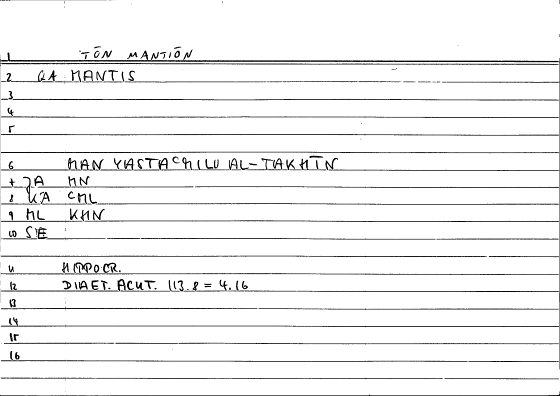 1 TŌN MANTIŌN
2 QA MANTIS
3
4
5
6 MAN YASTAᶜMILU AL-TAKHĪN
7 JA MN
8 KA ᶜML
9 ML KHN
10 SE
11 HIPPOCR.
12 DIAET. ACUT. 113.8 = 4.16
13
14
15
16